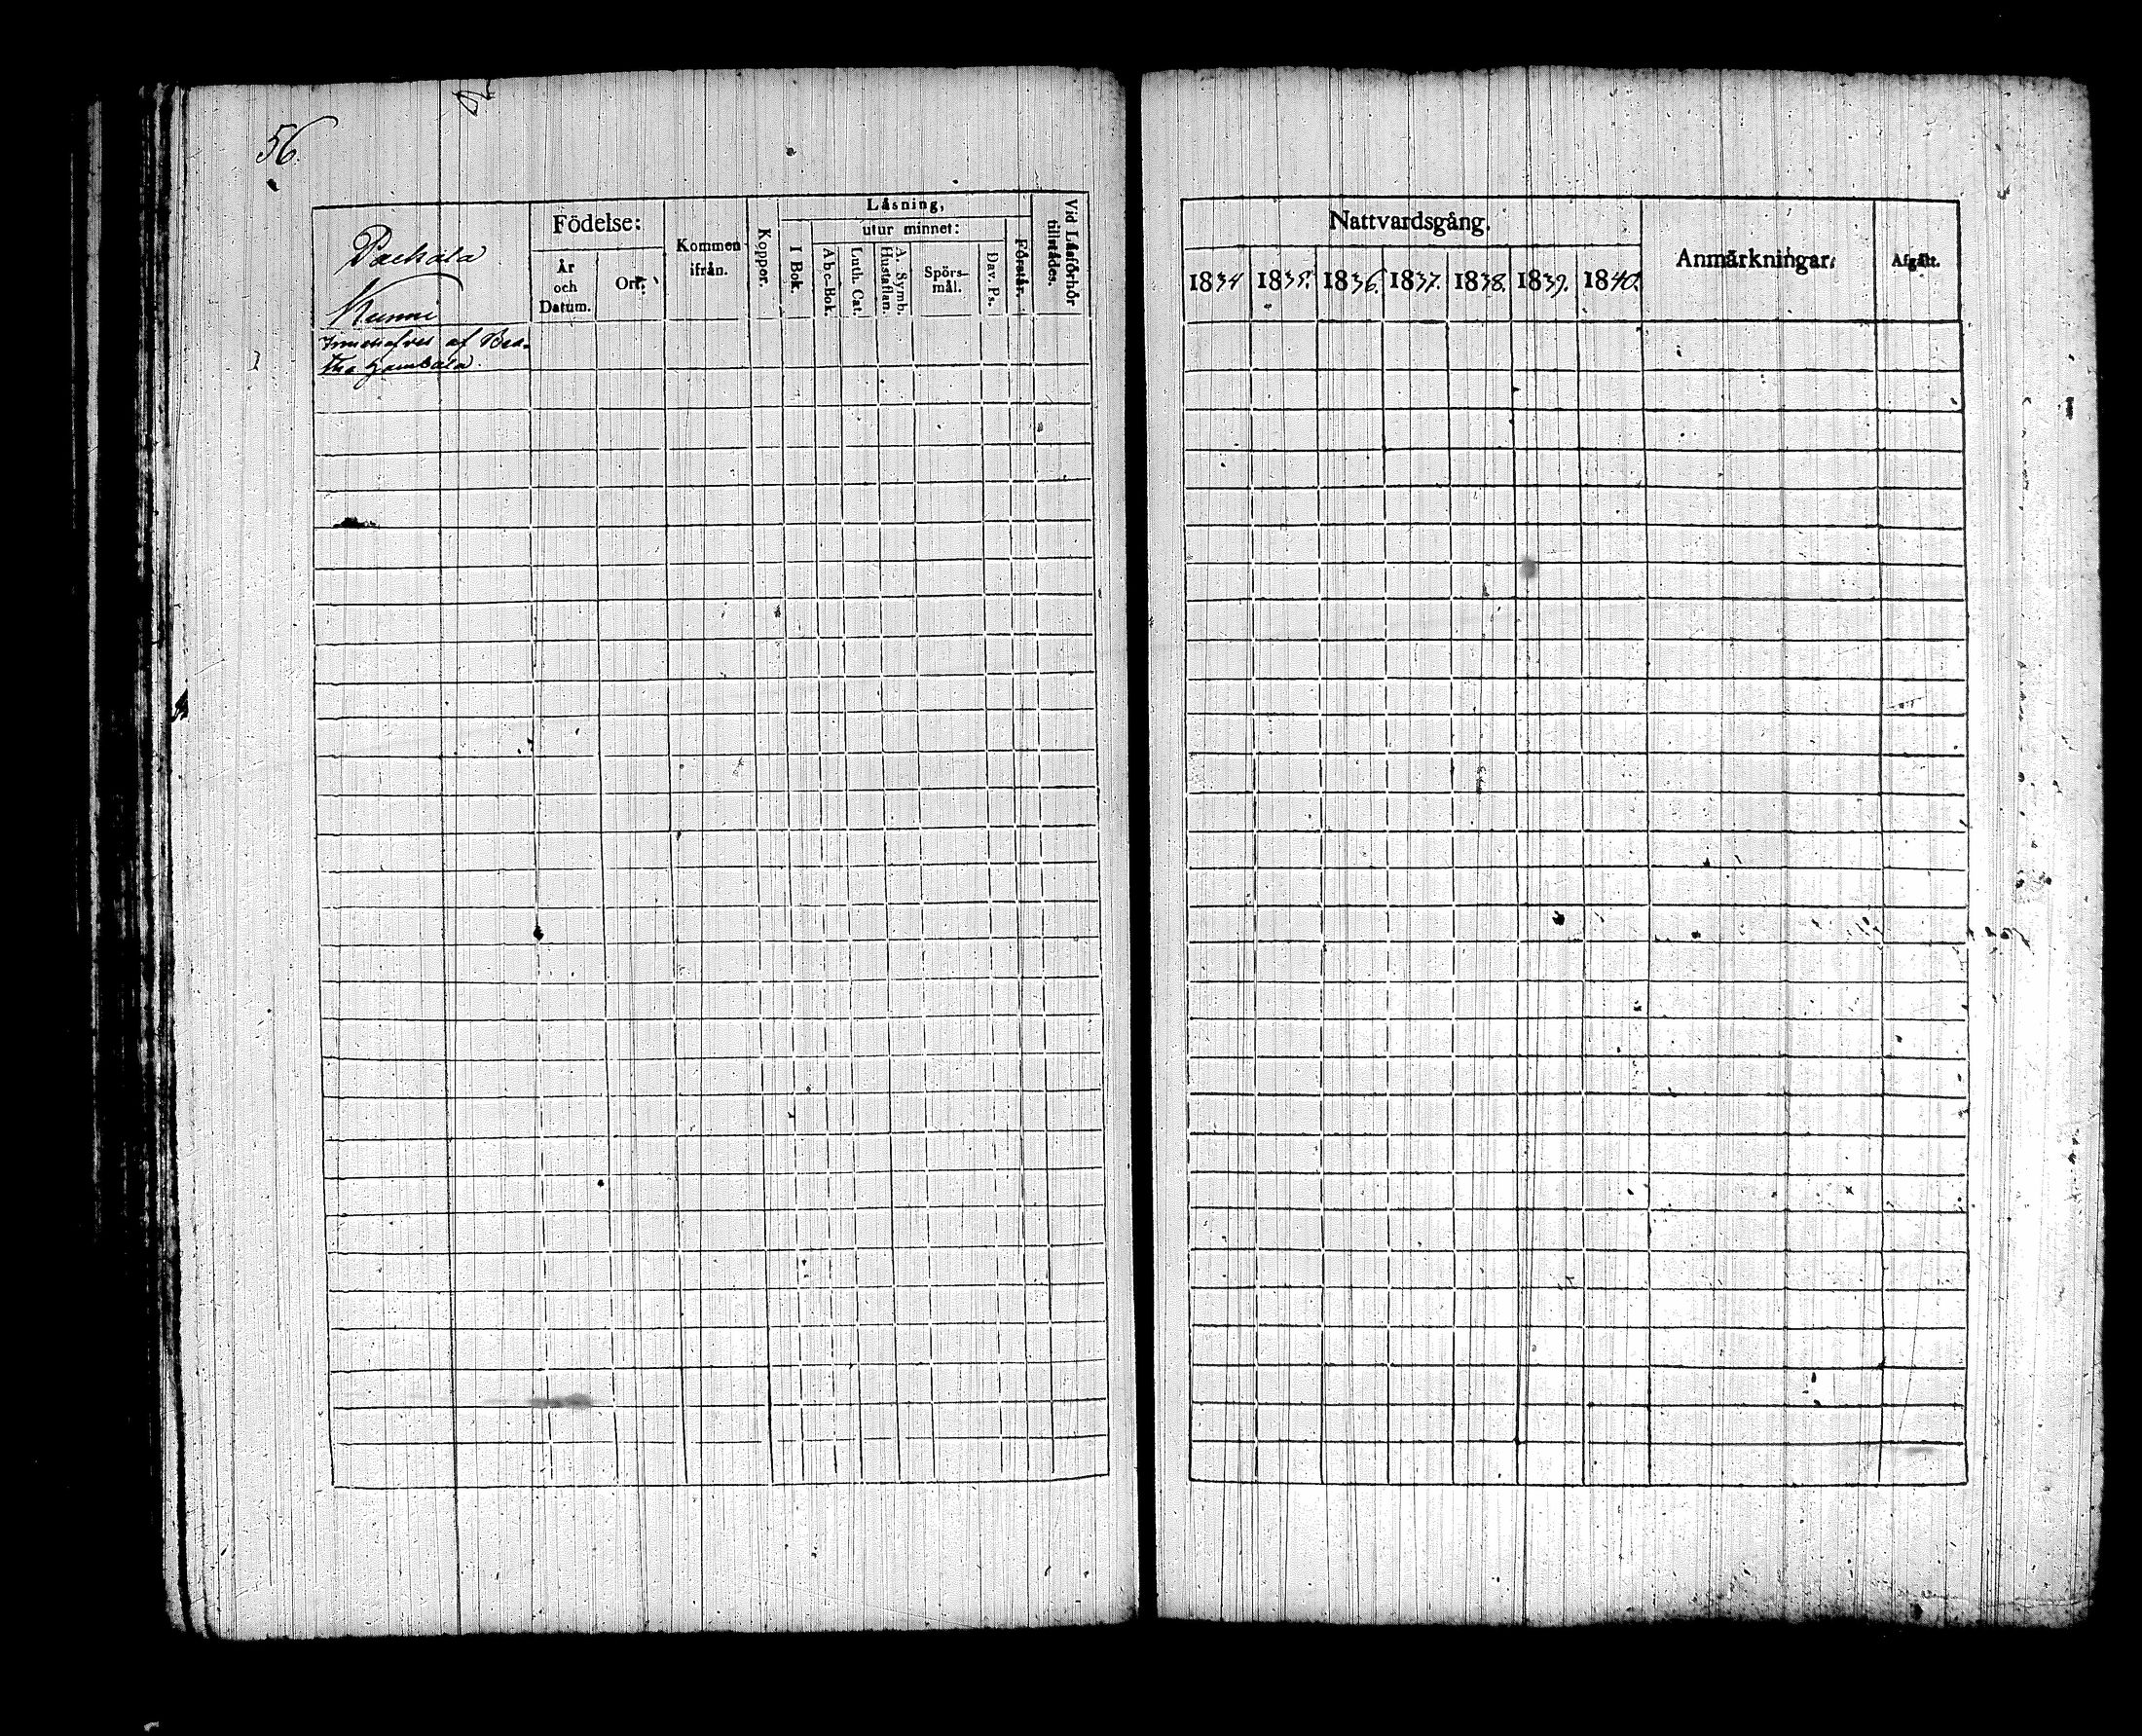 56.
Pachala
Kunni
Innehafves af Bea-
tha Gambala.
Födelse:
År
och
Datum.
Ort.
Kommen
ifrån.
Koppor.
Läsning,
I Bok.
utur minnet:
Abc-Bok.
Luth. Cat.
A. Symb.
Hustaflan.
Spörs-
mål.
Dav. Ps.
Förstår.
Vid Läsförhör
tillstädes.
Nattvardsgång.
1834
1835.
1836.
1837.
1838.
1839.
1840.
Anmärkningar.
Afgått.